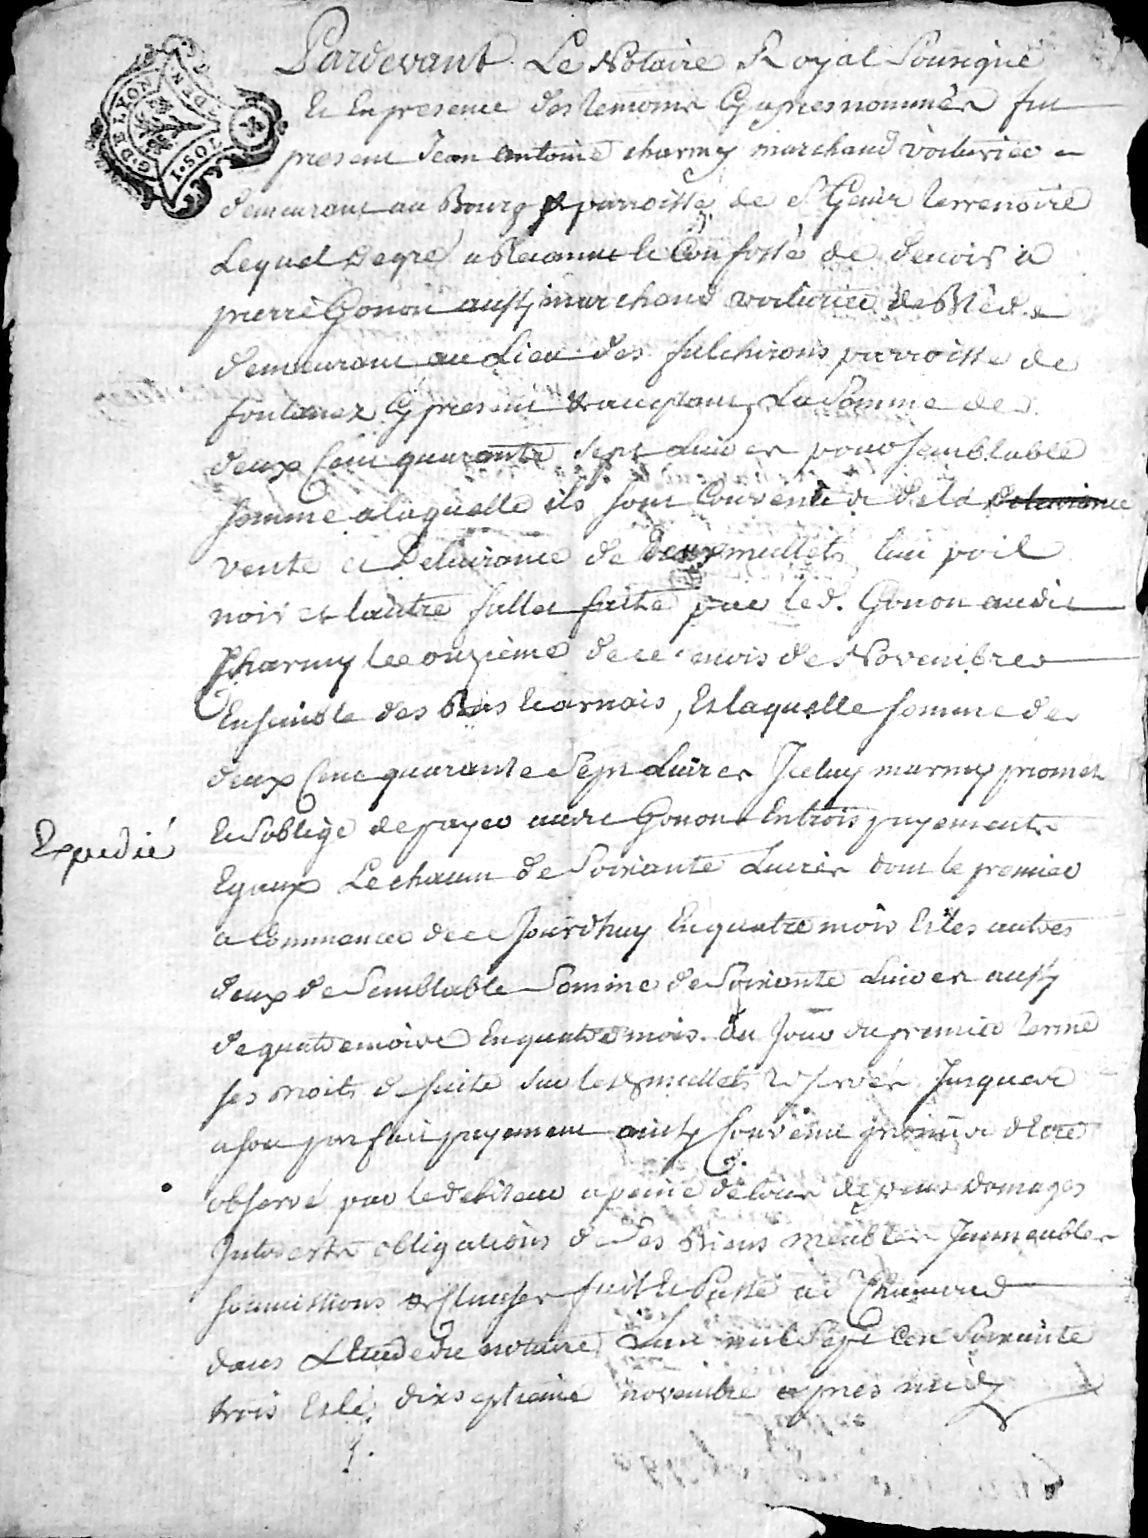 GDELYON
DEN
1.SOL.
Pardevant Le Notaire Royal Sousigné
Et En presence des temoins Cy apres nommés fut
present Jean antoine charmy marchand voiturier
demeurant au Bourg & parroisse de St Genis terrenoire
Lequel de gré a Reconnu & Confessé de devoir a
pierre Gonon aussy marchand voiturier de Bled
demeurant au Lieu des fulchirons parroisse de
fontanez Cy present & acceptant, La Somme de
deux Cent quarante sept Livres pour semblable
somme a laquelle ils sont Convenu de la delivrance
vente et Delivrance de deux mullets lun poil
noir et lautre fallet faite par led. Gonon audit
Charmy le onzieme de ce mois de Novembre
Ensemble des Bas harnois, Et laquelle somme de
deux Cent quarante Sept Livres Iceluy marmy promet
Et Soblige de payer audit Gonon En trois payements
Egaux Le chacun de Soixante Livres dont le premier
a Commencer de ce Jourdhuy En quatre mois Et les autres
deux de Semblable Somme de Soixante Livres aussy
de quatre mois En quatre mois. du Jour du premier terme
ses droits de suite sur lesd. mullets reservés Jusques
a son parfait payement ainsy Convenu promis detre
observé par le debiteur a peine de tous depens domages
Interests obligations de Ses Biens meubles Immeubles
soumissions & Clauses fait et Passé a St Chamond
dans LEtude du notaire Lan mil Sept Cent Soixante
trois Et le dixseptieme novembre apres midy
Expedié